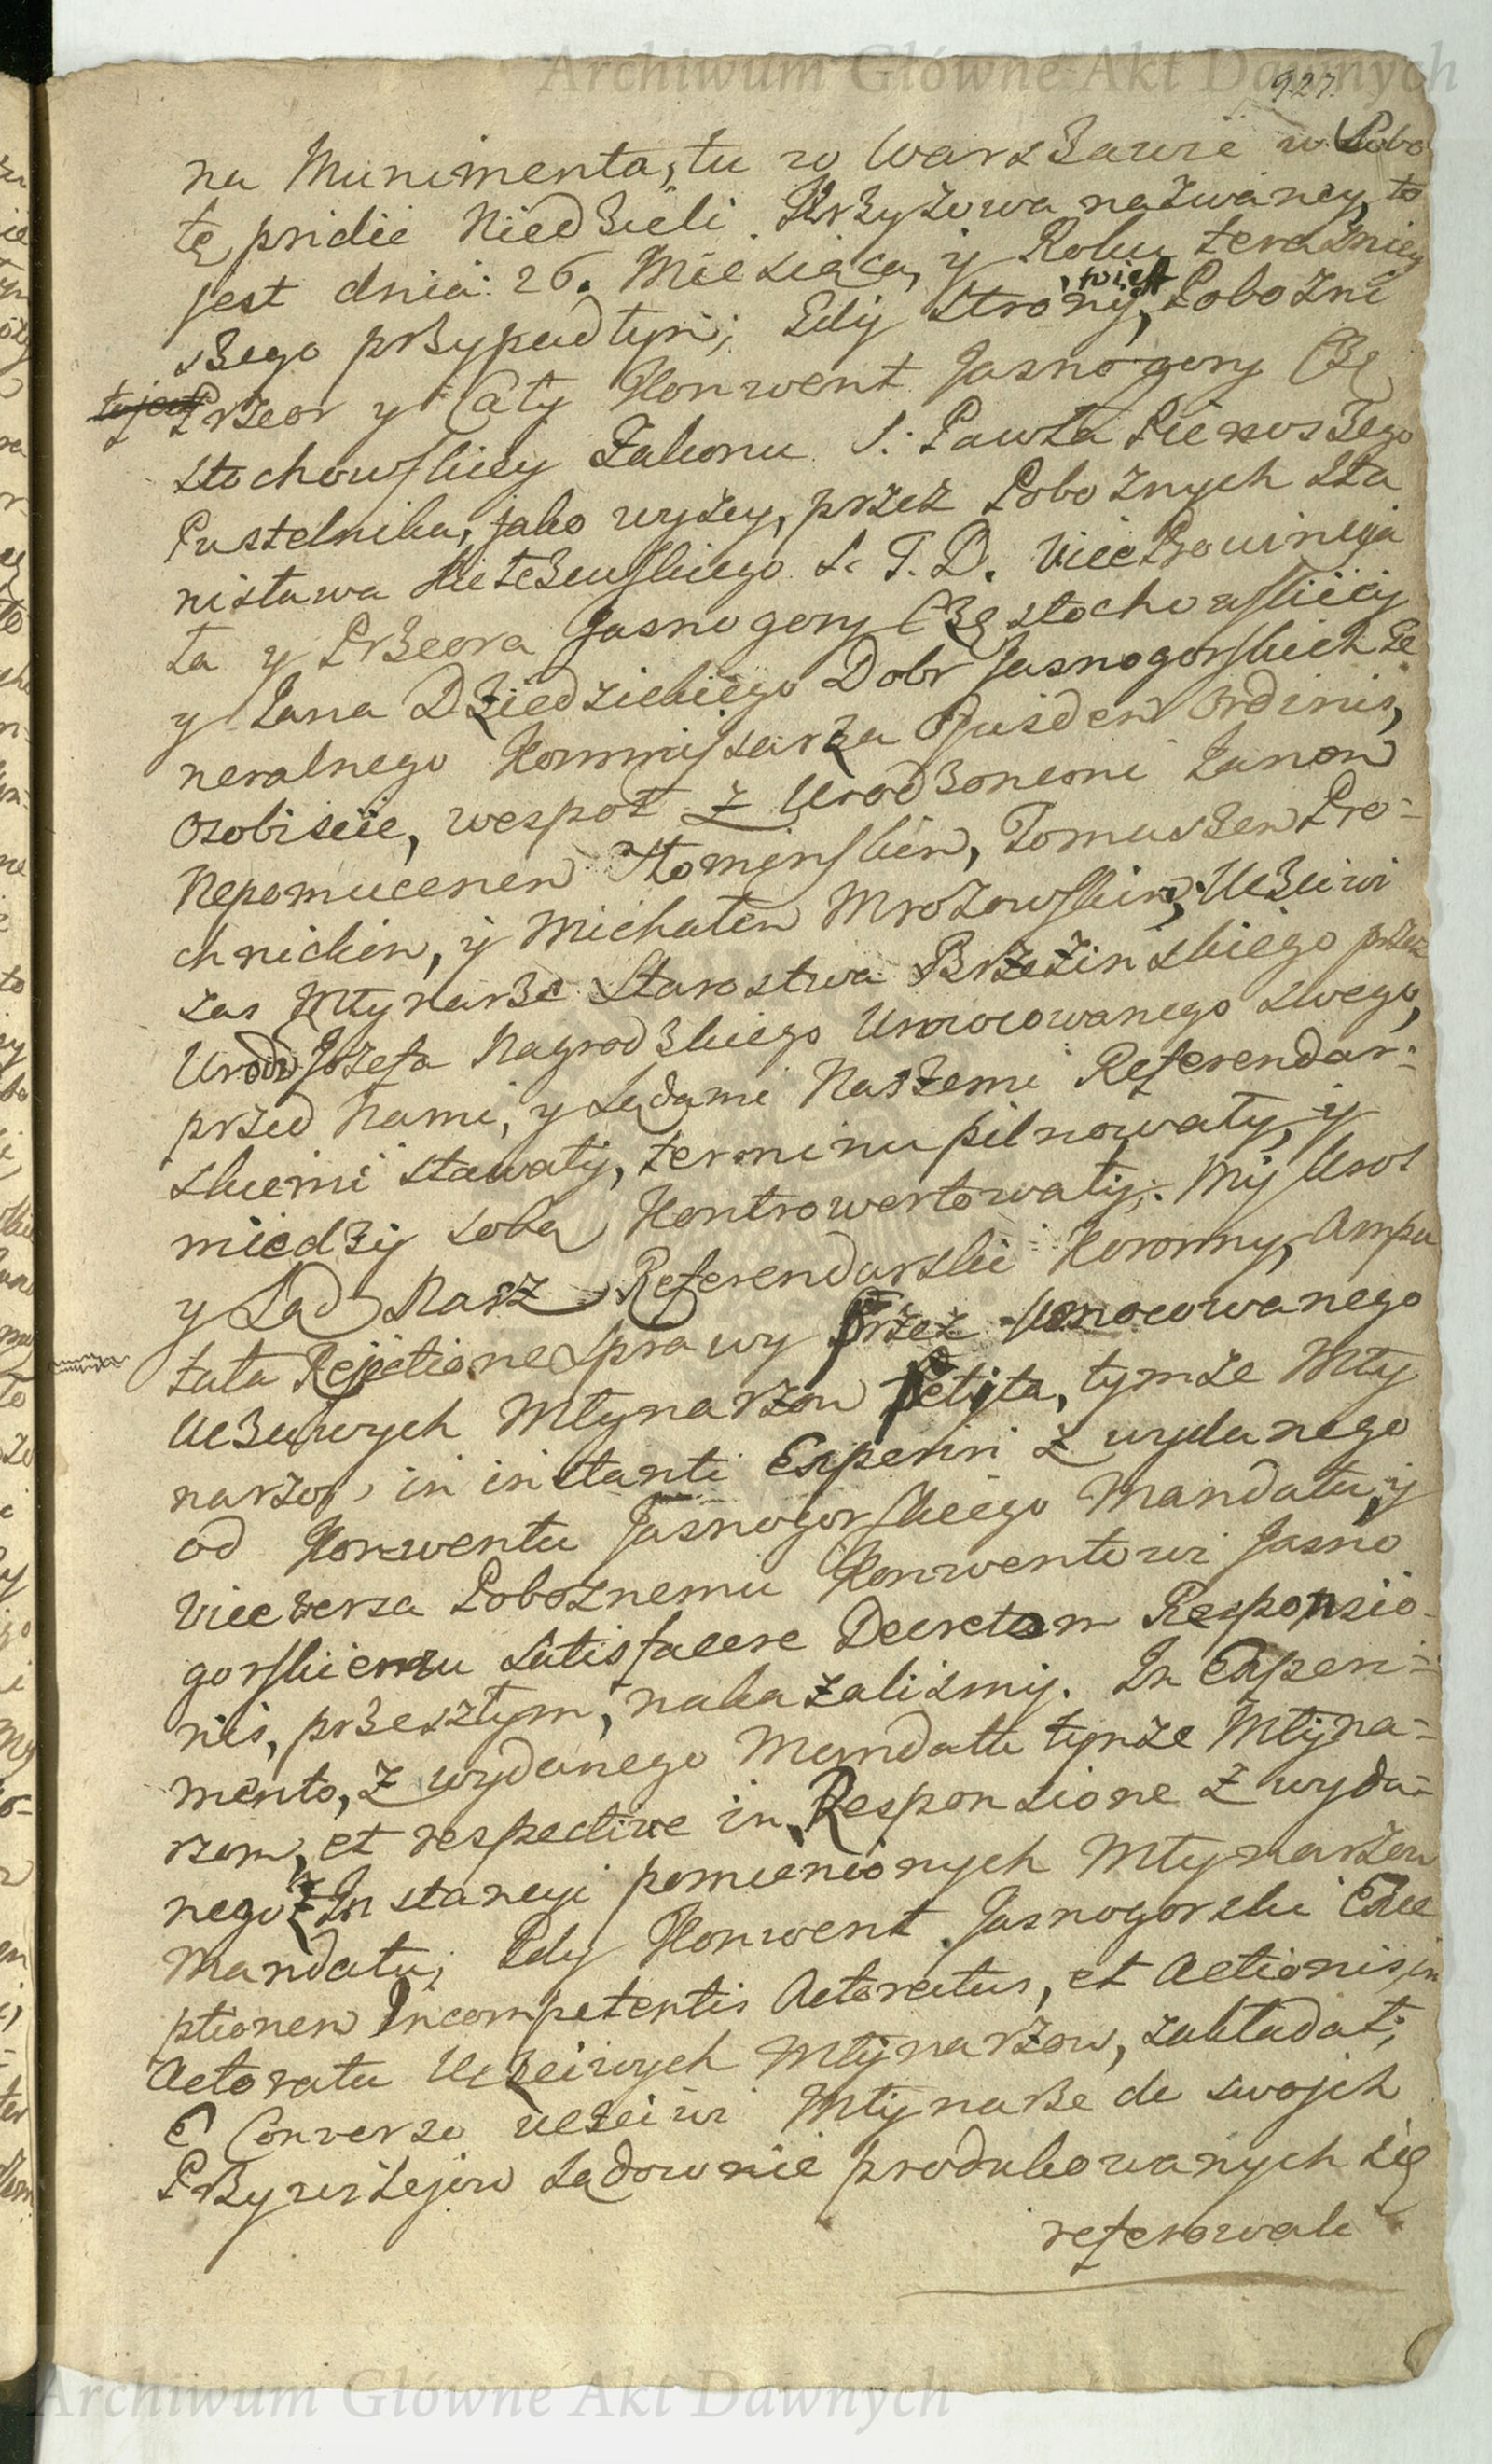 Archiwum Główne Akt Dawnych
927.
na Munimenta, tu w Warszawie w Sobo
tę pridie Niedzieli Krzyżowa nazwaney, to
jest dnia: 26. Miesiąca, y Roku teraźniey
szego przypadłym; Gdy Strony, Pobożni
Przeor y Cały Konwent Jasnogory Czę
stochowskiey Zakonu S: Pawła Pierwszego
Pustelnika, jako wyżey, przez Pobożnych Sta
nisława S. T. D. Vice Prowincyja
ła y Przeora Jasnogory Częstochowskiey
y Jana Dziedzickiego Dobr Jasnogorskich Ge
neralnego Kommissarza Ejusdem Ordinis,
osobiscie, wespoł z Urodzonemi Janem
Nepomucenem Tomaszem Pro-
chnickim, y Michałem Mrozowskim; Uczciwi
zas Młynarze Starostwa Brzezinskiego przez
Urodz: Jozefa Nagrodzkiego Umocowanego swego,
przed Nami, y Sądami Naszemi Referendar:
skiemi stawały, terminu pilnowały, y
miedzy sobą Kontrowertowały: My Krol
y Sąd Nasz Referendarski Koronny, Ampu
tata Rejectione Sprawy Przez Umocowanego
Uczciwych Młynarzow Petita, tymże Mły
narzom in instanti Experiri z wydanego
od Konwentu Jasnogorskiego Mandatu, y
vice versa Pobożnemu Konwentowi Jasno
gorskiemu Satisfacere Decretom Responsio-
nis, przeszłym, nakazalismy. In Experi=
mento, z wydanego Mandatu tymże Młyna=
rzom, et respective in Responsione z wyda=
nego z Instancyi pomienionych Młynarzow
Mandatu; Gdy Konwent Jasnogorski Exce
ptionem Incompetentis Actoratus, et Actionis, in
Actoratu Uczciwych Młynarzow, zakładał;
E Converso uczciwi Młynarze do swojch
Przywilejow sądownie produkowanych się
referowali
Archiwum Główne Akt Dawnych